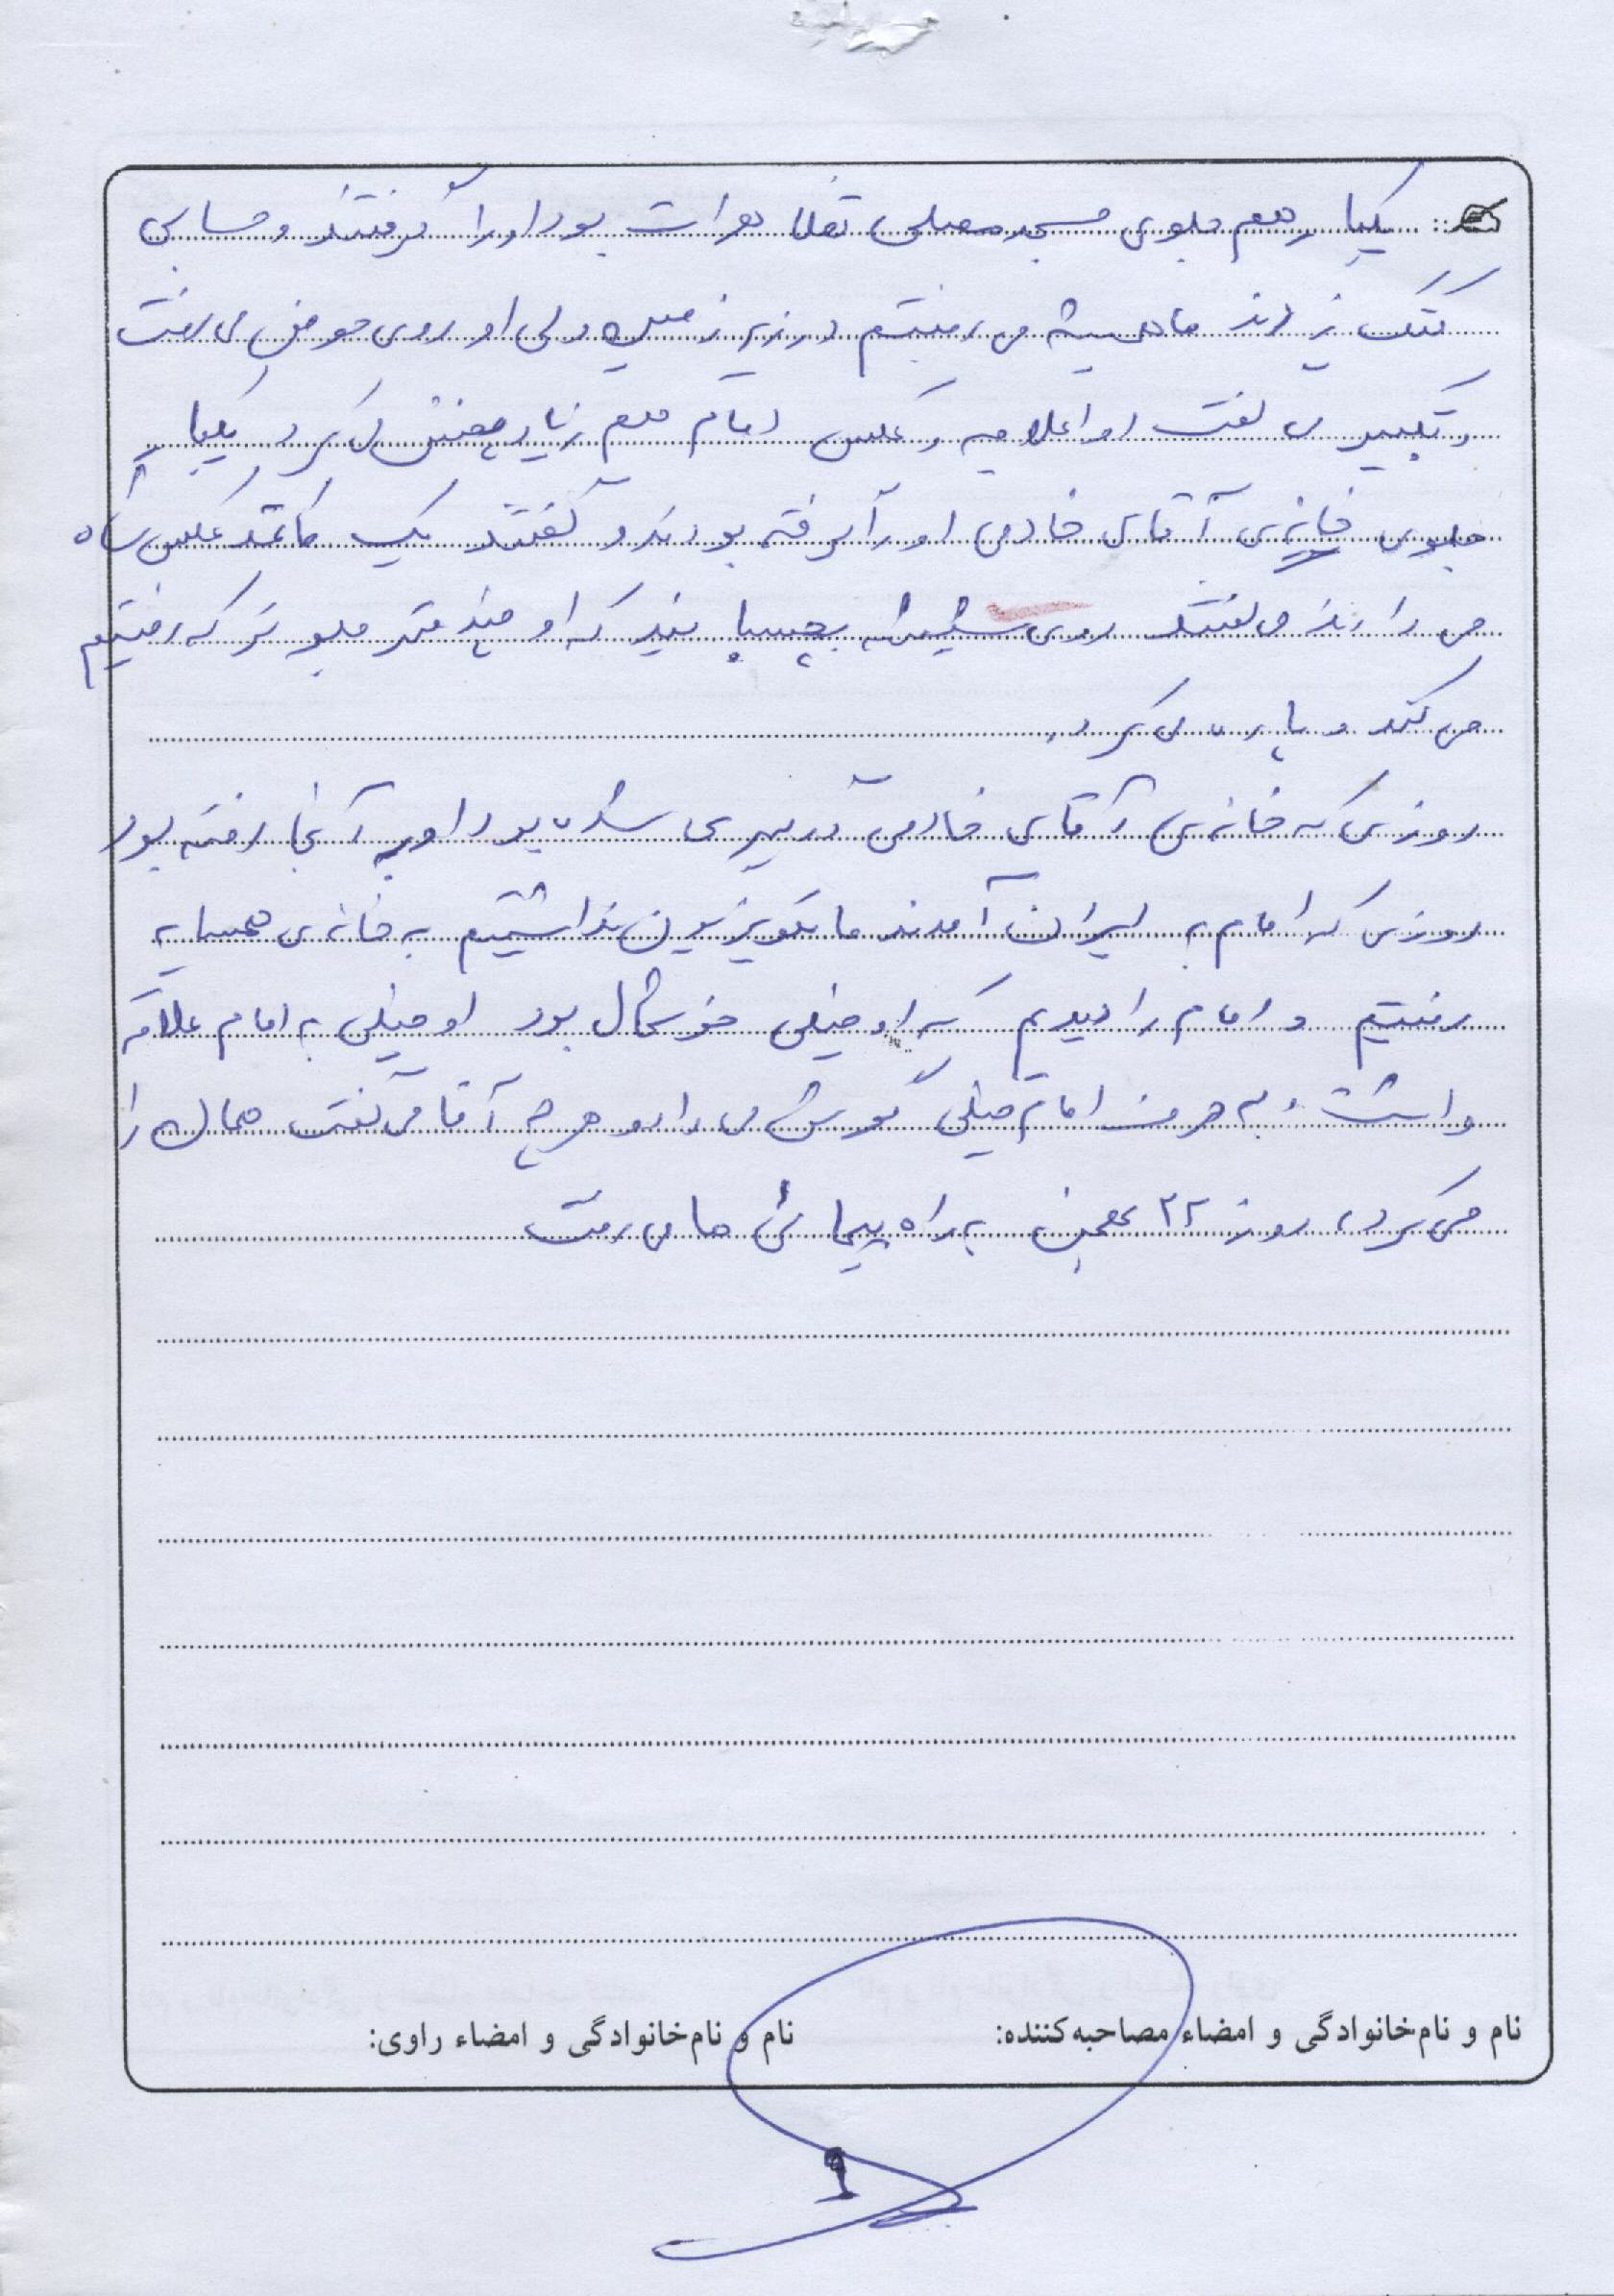 یکبار هم جلوی مسجد مصلی تظاهرات بود او را گرفتند و حسابی
کتک زدند ما همیشه می رفتیم در زیر زمین ولی او روی حوض می رفت
و تکبیر می گفت او اعلامیه و عکس امام هم زیاد پخش می کرد یکبار
جلوی خانه ی آقای خادمی او را گرفته بودند و گفتند یک کاغذ عکس شاه
می دادند می گفتند روی شیشه بچسبانید که او چند متر جلو تر که رفتیم
می کند و پاره می کرد.
روزی که خانه ی آقای خادمی درگیری شده بود او به آنجا رفته بود
روزی که امام به ایران آمدند ما تلویزیون نداشتیم به خانه ی همسایه
رفتیم و امام را دیدیم که او خیلی خوشحال بود او خیلی به امام علاقه
داشت و به حرف امام خیلی گوش می داد و هر چه آقا می گفت همان را
می کرد، روز ۲۲ بهمن به راه پیمائی ها می رفت
نام و نام‌خانوادگی و امضاء مصاحبه‌کننده: نام و نام‌خانوادگی و امضاء راوی:
۹